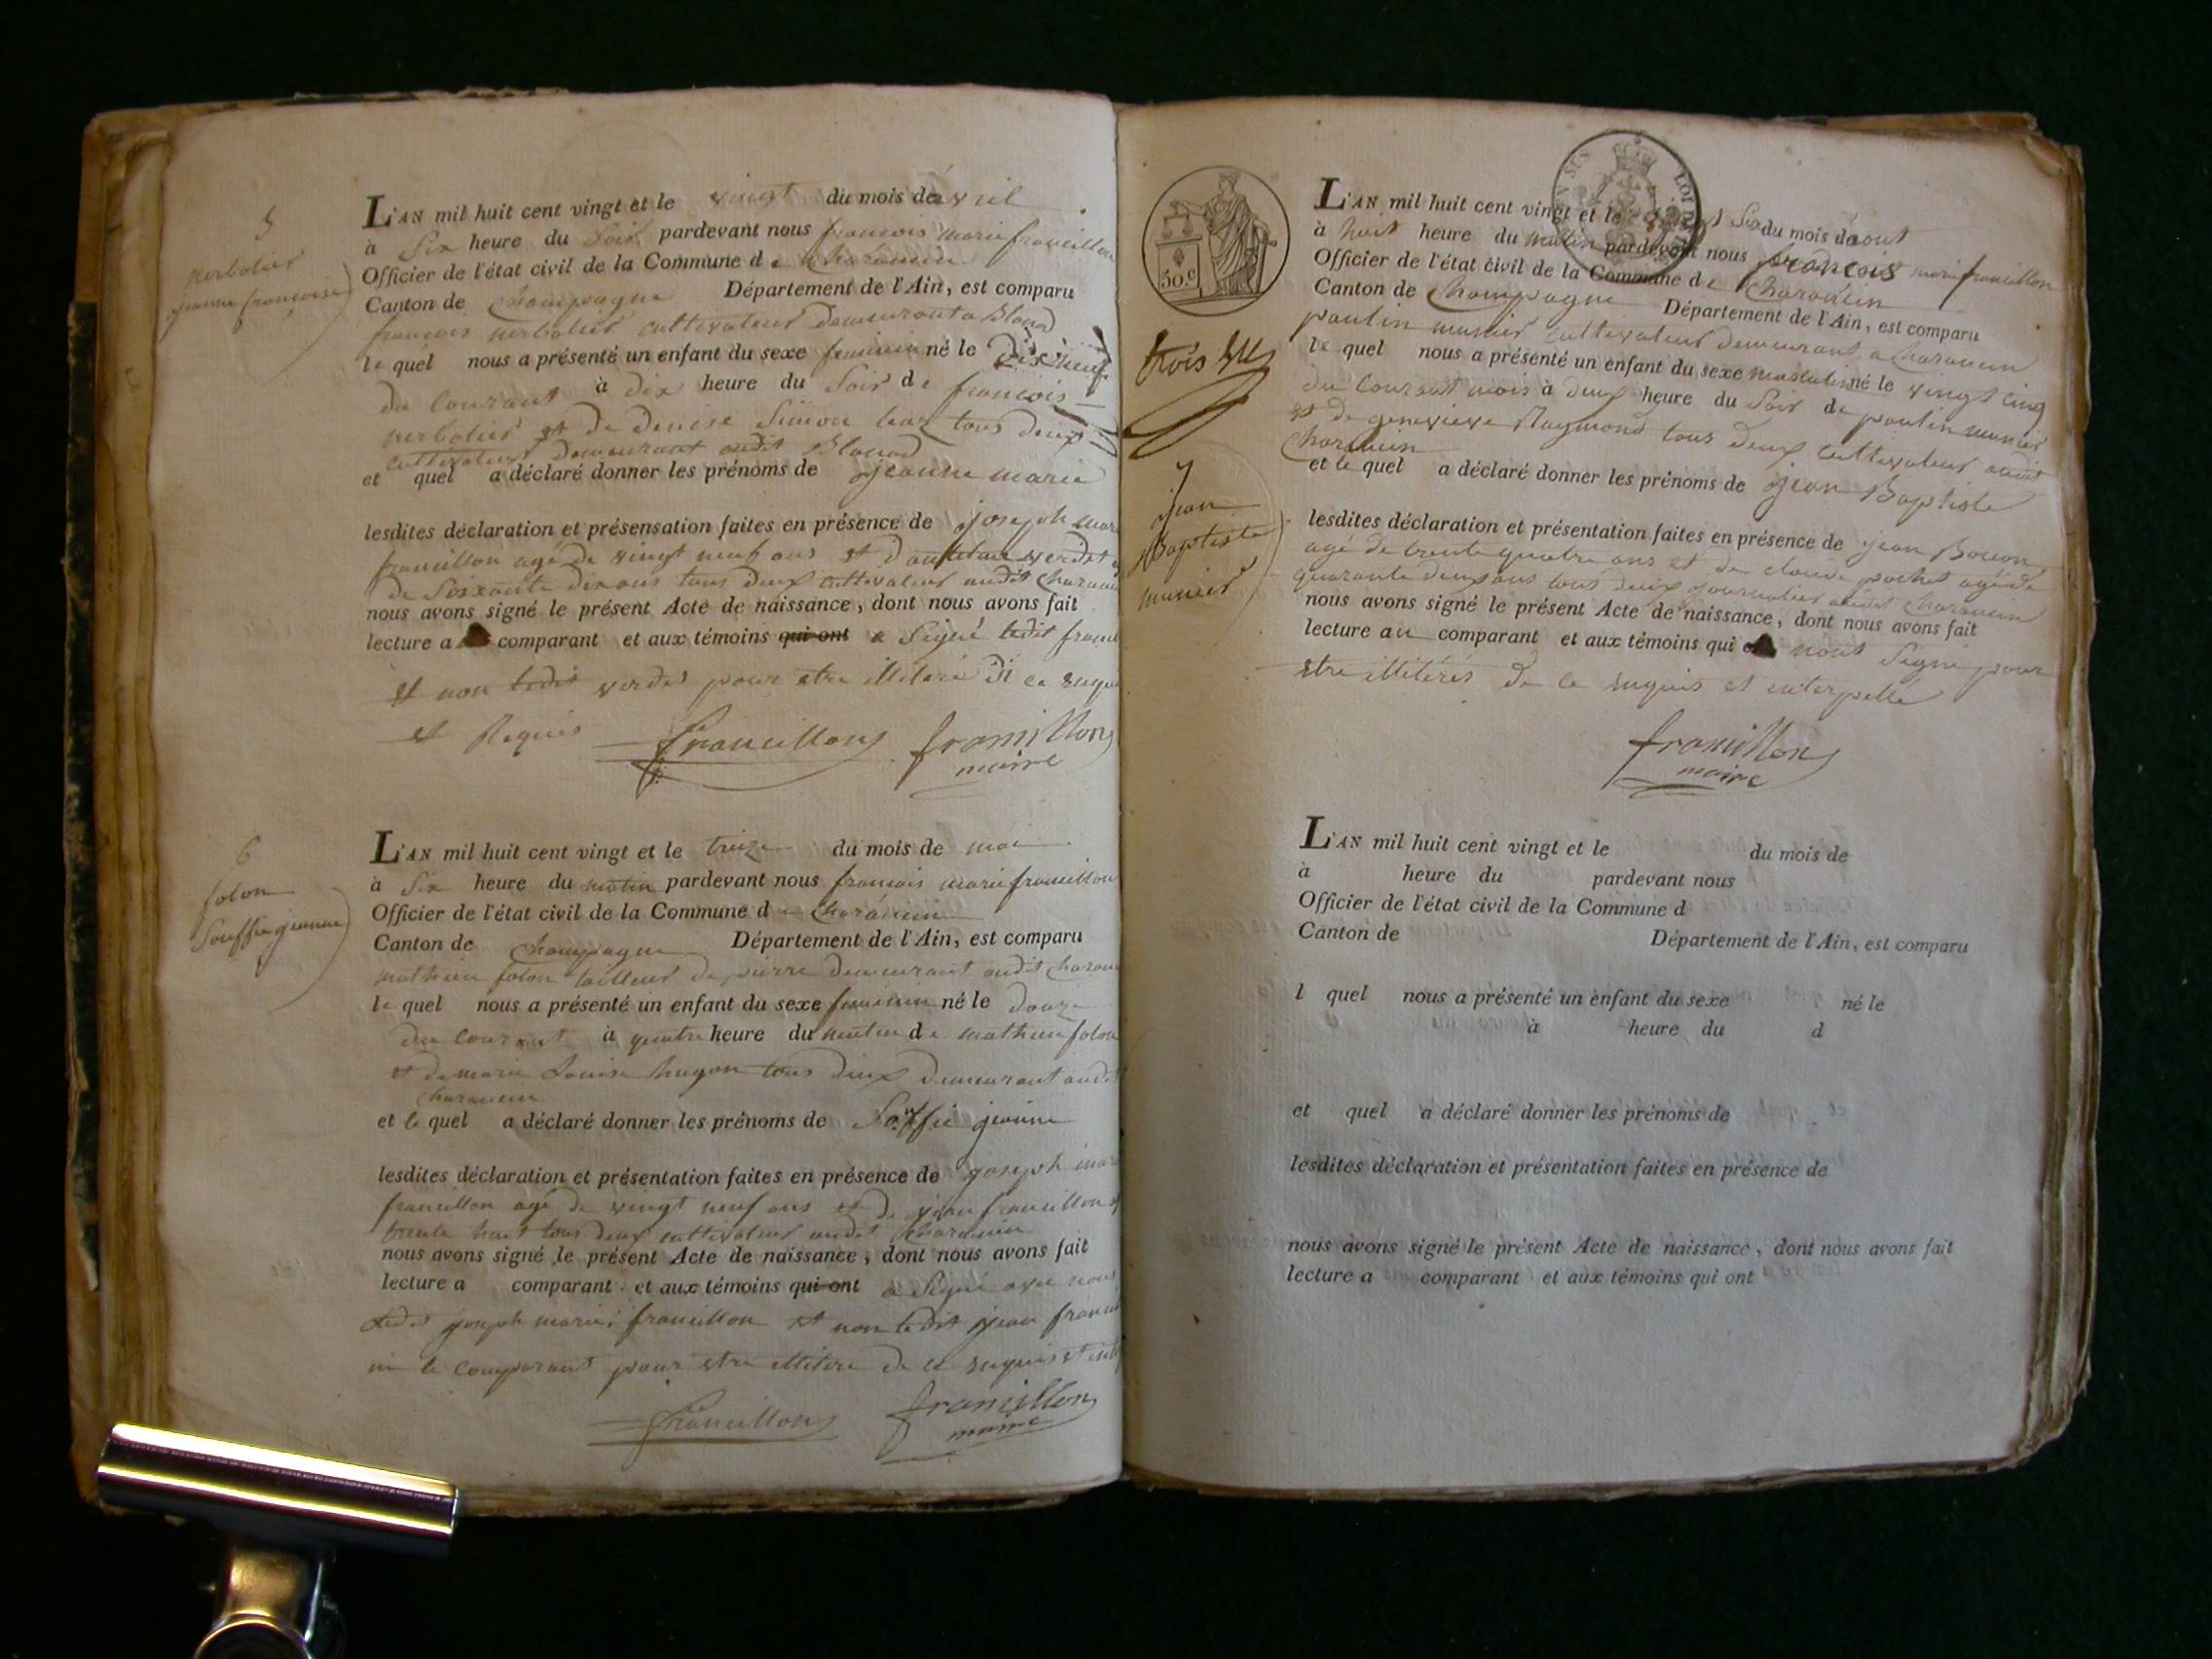 5
perbolier
jeanne françoise
L'AN mil huit cent vingt et le vingt du mois de avril
à Six heure du Soir pardevant nous francois marie francillon
Officier de l'état civil de la Commune de Charancin
Canton de Champagne Département de l'Ain, est comparu
francois perbolier cultivateur demeurant a Blanad
le quel nous a présenté un enfant du sexe feminin né le Dix neuf
du Courant à Dix heure du Soir de francois
perbolier et de Denise Simon tous deux
cultivateur demeurant audit Blanad
et quel a déclaré donner les prénoms de jeanne marie
lesdites déclaration et présensation faites en présence de joseph mar
francillon agé de vingt neuf ans et d verdet
de Soixante dix ans tous deux cultivateur audit charan
nous avons signé le présent Acte de naissance, dont nous avons fait
lecture a comparant et aux témoins qui ont a Signé ledit francil
et non ledit verdet pour etre illiteré di ce
et Requis francillon francillon
maire
6
folon
Souffie jeanne
L'AN mil huit cent vingt et le treize du mois de mai
à Six heure du matin pardevant nous francois marie francillon
Officier de l'état civil de la Commune de Charancin
Canton de Champagne Département de l'Ain, est comparu
mathieu folon tailleur de pierre demeurant audit charan
le quel nous a présenté un enfant du sexe feminin né le douze
du Courant à quatre heure du matin de mathieu folon
et de marie Louise hugon tous deux demeurant audit
Charancin
et le quel a déclaré donner les prénoms de Souffie jeanne
lesdites déclaration et présentation faites en présence de joseph mar
francillon agé de vingt neuf ans et de jean francillon
trente huit tous deux cultivateur audit Charancin
nous avons signé le présent Acte de naissance, dont nous avons fait
lecture a comparant et aux témoins qui ont a Signé avec nous
ledit joseph marie francillon et non ledit jean franci
ni le comparant pour etre illitere de ce requis et
francillon francillon
maire
50.c
trois
7
jean
Baptiste
munier
L'AN mil huit cent vingt et le vingt Six du mois daout
à huit heure du matin pardevant nous francois marie francillon
Officier de l'état civil de la Commune de Charancin
Canton de Champagne Département de l'Ain, est comparu
paulin munier cultivateur demeurant a charancin
le quel nous a présenté un enfant du sexe masculin né le vingt cinq
du Courant mois à deux heure du Soir de paulin munier
et de genevieve Raymond tous deux cultivateur audit
Charancin
et le quel a déclaré donner les prénoms de jean Baptiste
lesdites déclaration et présentation faites en présence de jean
agé de trente quatre ans et de claude pochet agé de
quarante deux ans tous deux journalier audit charancin
nous avons signé le présent Acte de naissance, dont nous avons fait
lecture au comparant et aux témoins qui nont Signé pour
etre illiterés de ce requis et interpellé
francillon
maire
L'AN mil huit cent vingt et le du mois de
à heure du pardevant nous
Officier de l'état civil de la Commune d
Canton de Département de l'Ain, est comparu
l quel nous a présenté un enfant du sexe né le
à heure du d
et quel a déclaré donner les prénoms de
lesdites déclaration et présentation faites en présence de
nous avons signé le présent Acte de naissance, dont nous avons fait
lecture a comparant et aux témoins qui ont